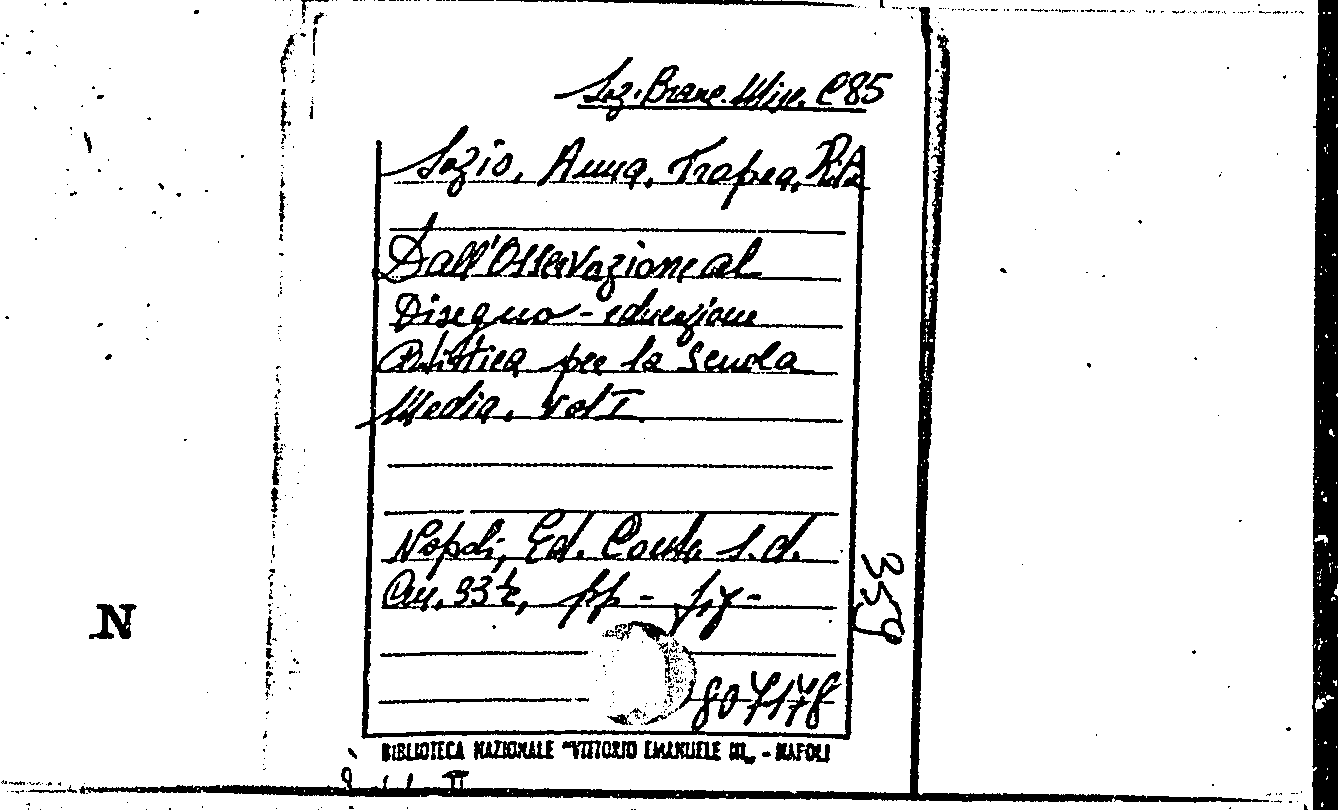 Sez. Branc. Misc. C85
Sozio, Anna, Trapea, Rita
Dall'Osservazione al
Disegno - educazione
Artistica per la Scuola
Media, Vol I
Napoli, Ed. s.d.
Cm. 33½, pp - fig -
359
N
807178
BIBLIOTECA NAZIONALE "VITTORIO EMANUELE III„ - NAPOLI